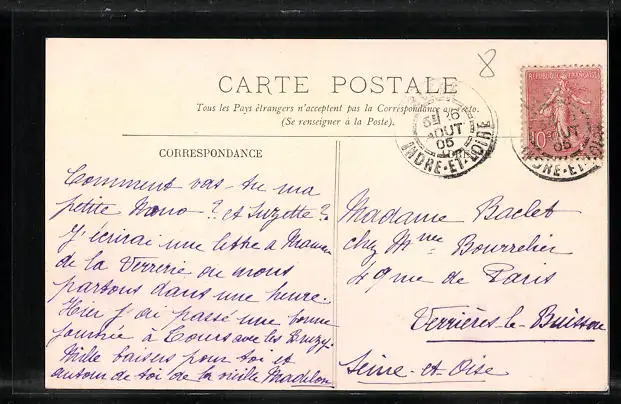 8
CARTE POSTALE
Tous les Pays étrangers n'acceptent pas la Correspondance au recto.
(Se renseigner à la Poste).
REPUBLIQUE FRANÇAISE
10
26
AOUT
05
INDRE-ET-LOIRE
AOUT
05
INDRE-ET-LOIRE
CORRESPONDANCE
Comment vas-tu ma
petite Nano? et Suzette?
J'écrirai une lettre à Maman
de la Verrerie où nous
partons dans une heure.
Hier j'ai passé une bonne
journée à Tours avec les
Mille baisers pour toi et
autour de toi de la vieille Madelon
Madame Baclet
chez Mme Bourrelier
49 rue de Paris
Verrières-le-Buisson
Seine-et-Oise